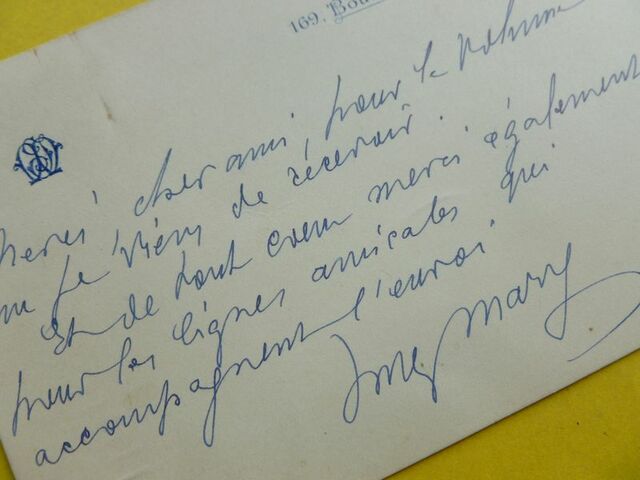 169, Bou
Merci cher ami, pour le volume
que je viens de recevoir.
Et de tout coeur merci également
pour les lignes amicales qui
accompagnent l'envoi.
Mary